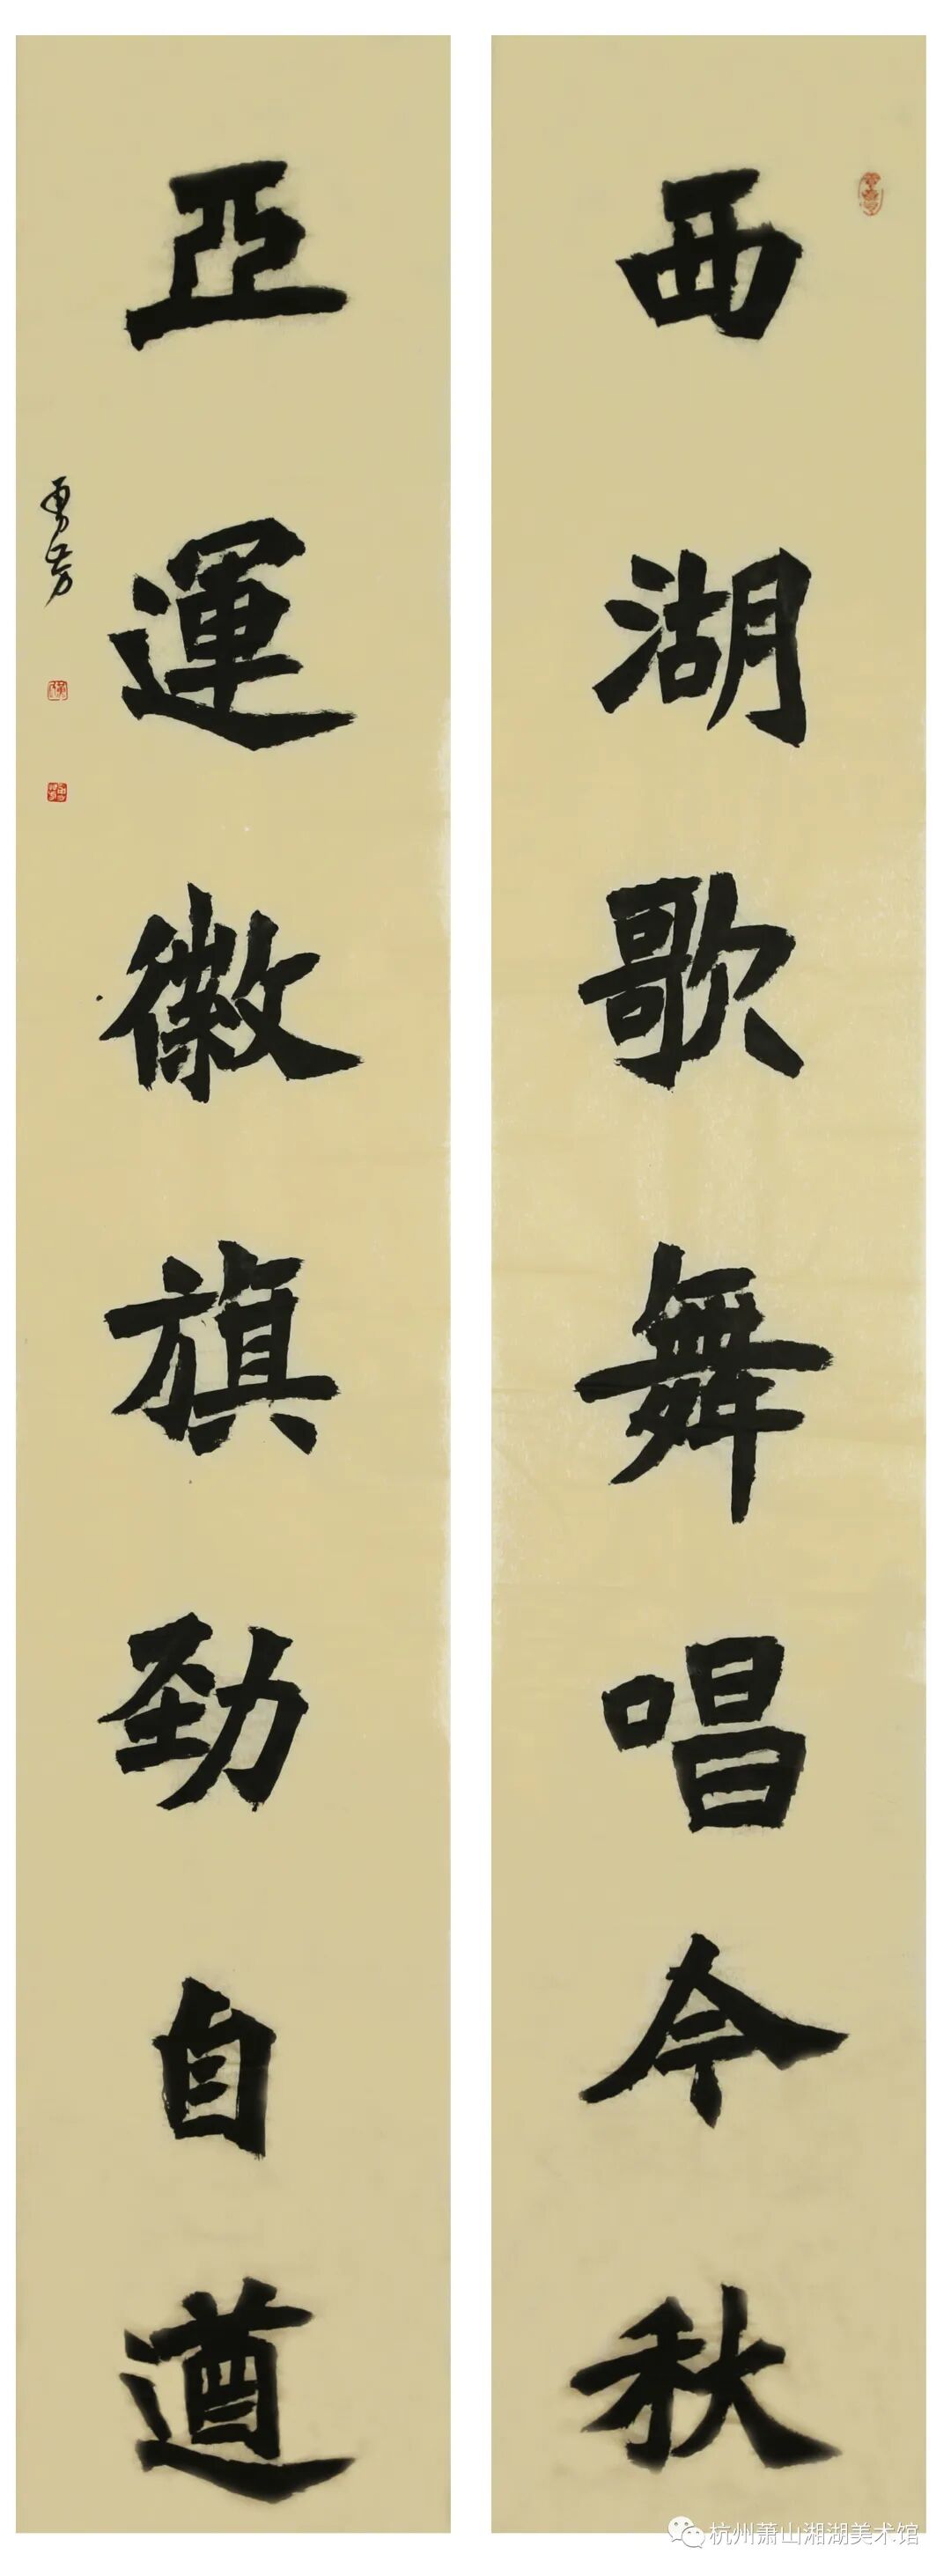 西湖歌舞唱今秋
亞運徽旗劲自遒
勇芳
杭州萧山湘湖美术馆